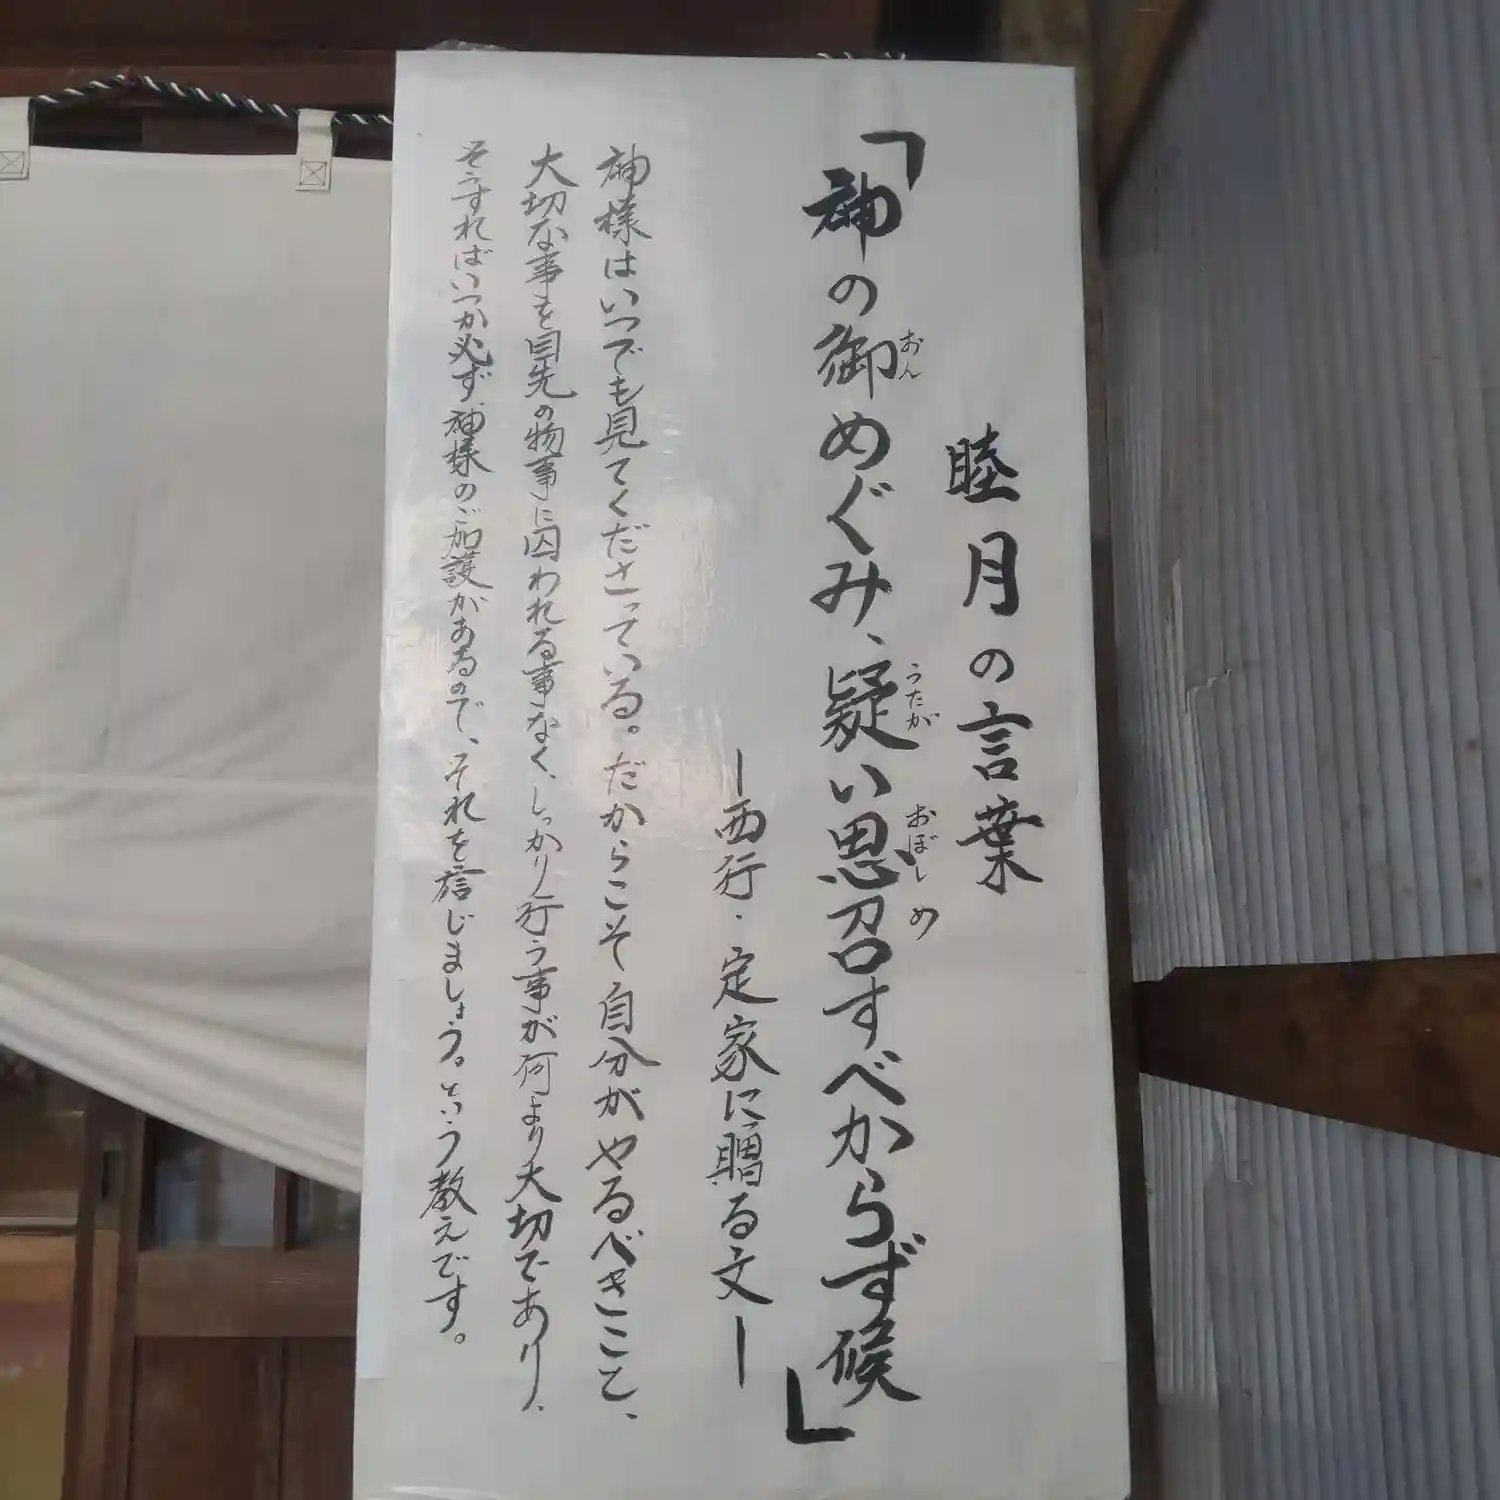 睦月の言葉
「神の御めぐみ、疑い思召すべからず候」
おん
うたが
おぼしめ
ー西行・定家に贈る文ー
神様はいつでも見てくださっている。だからこそ自分がやるべきこと、
大切な事を目先の物事に囚われる事なく、しっかり行う事が何より大切であり、
そうすればいつか必ず、神様のご加護があるので、それを信じましょう。という教えです。